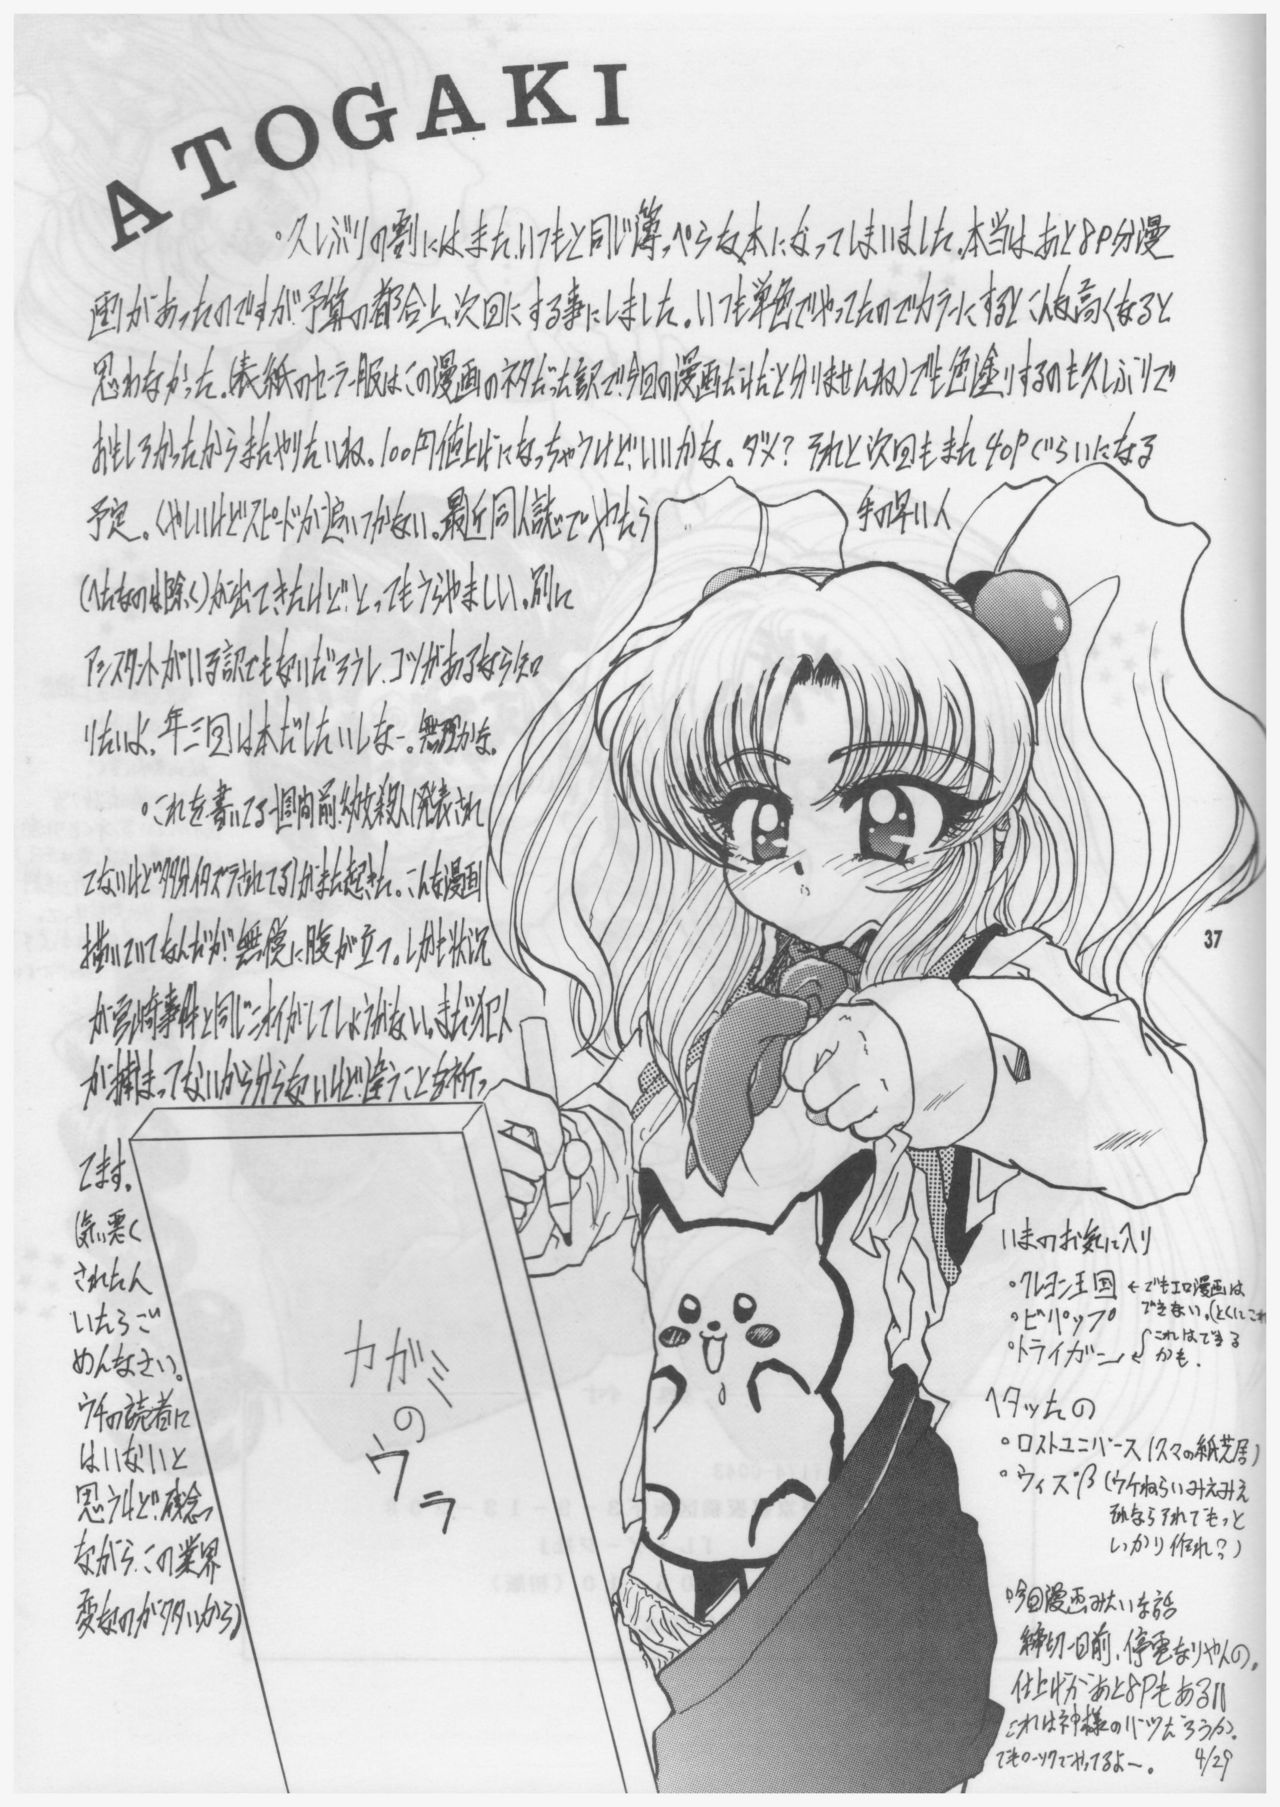 ATOGAKI
。久しぶりの割には、また、いつもと同じ薄っぺらな本になってしまいました。本当は、あと8P分漫
画があったのですが、予算の都合上、次回にする事にしました。いつも単色でやってたのでカラーにするとこんな高くなると
思わなかった。(表紙のセーラー服はこの漫画のネタだった訳で、今回の漫画だけだと分りませんね)でも色塗りするのも久しぶりで
おもしろかったからまたやりたいね。100円値上げになっちゃうけど、いいかな。ダメ?それと次回もまた40Pぐらいになる
予定。くやしいけどスピードが追いつかない。最近同人誌でやたら手の早い人
(へたなのは除く)が出てきたけど、とってもうらやましい。別に
アシスタントがいる訳でもないだろうし、コツがあるなら知
りたいよ、年三回は本だしたいしなー。無理かな。
。これを書いてる一週間前、幼女殺人(発表され
てないけど多分イタズラされてる)がまた起きた。こんな漫画
描いていてなんだが、無性に腹が立つ。しかも状況
が宮崎事件と同じニオイがしてしょうがない。まだ犯人
が捕まってないから分らないけど、違うことを祈っ
てます。
(気い悪く
された人
いたらご
めんなさい。
ウチの読者に
はいないと
思うけど、残念
ながら、この業界
変なのが多いから)
カガミ
の
ウラ
37
いまのお気に入り
。クレヨン王国 ←でもエロ漫画は
できない。(とくにこれ
。ビバップ
。トライガン ←これはできる
かも。
ヘタッたの
。ロストユニバース(スマの紙芝居)
。ウィズβ(ウケねらいみえみえ
それならそれでもっと
しっかり作れ?)
。今回漫画みたいな話
締切一日前、停電なりやんの。
仕上げがあと8Pもある!!
これは神様のバツだろうか。
でもローソクでやってるよー。 4/29